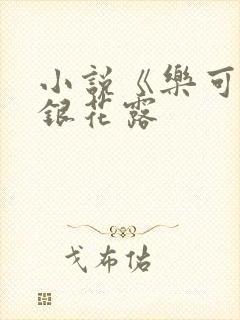 小說《樂可
銀花露
戈布佑